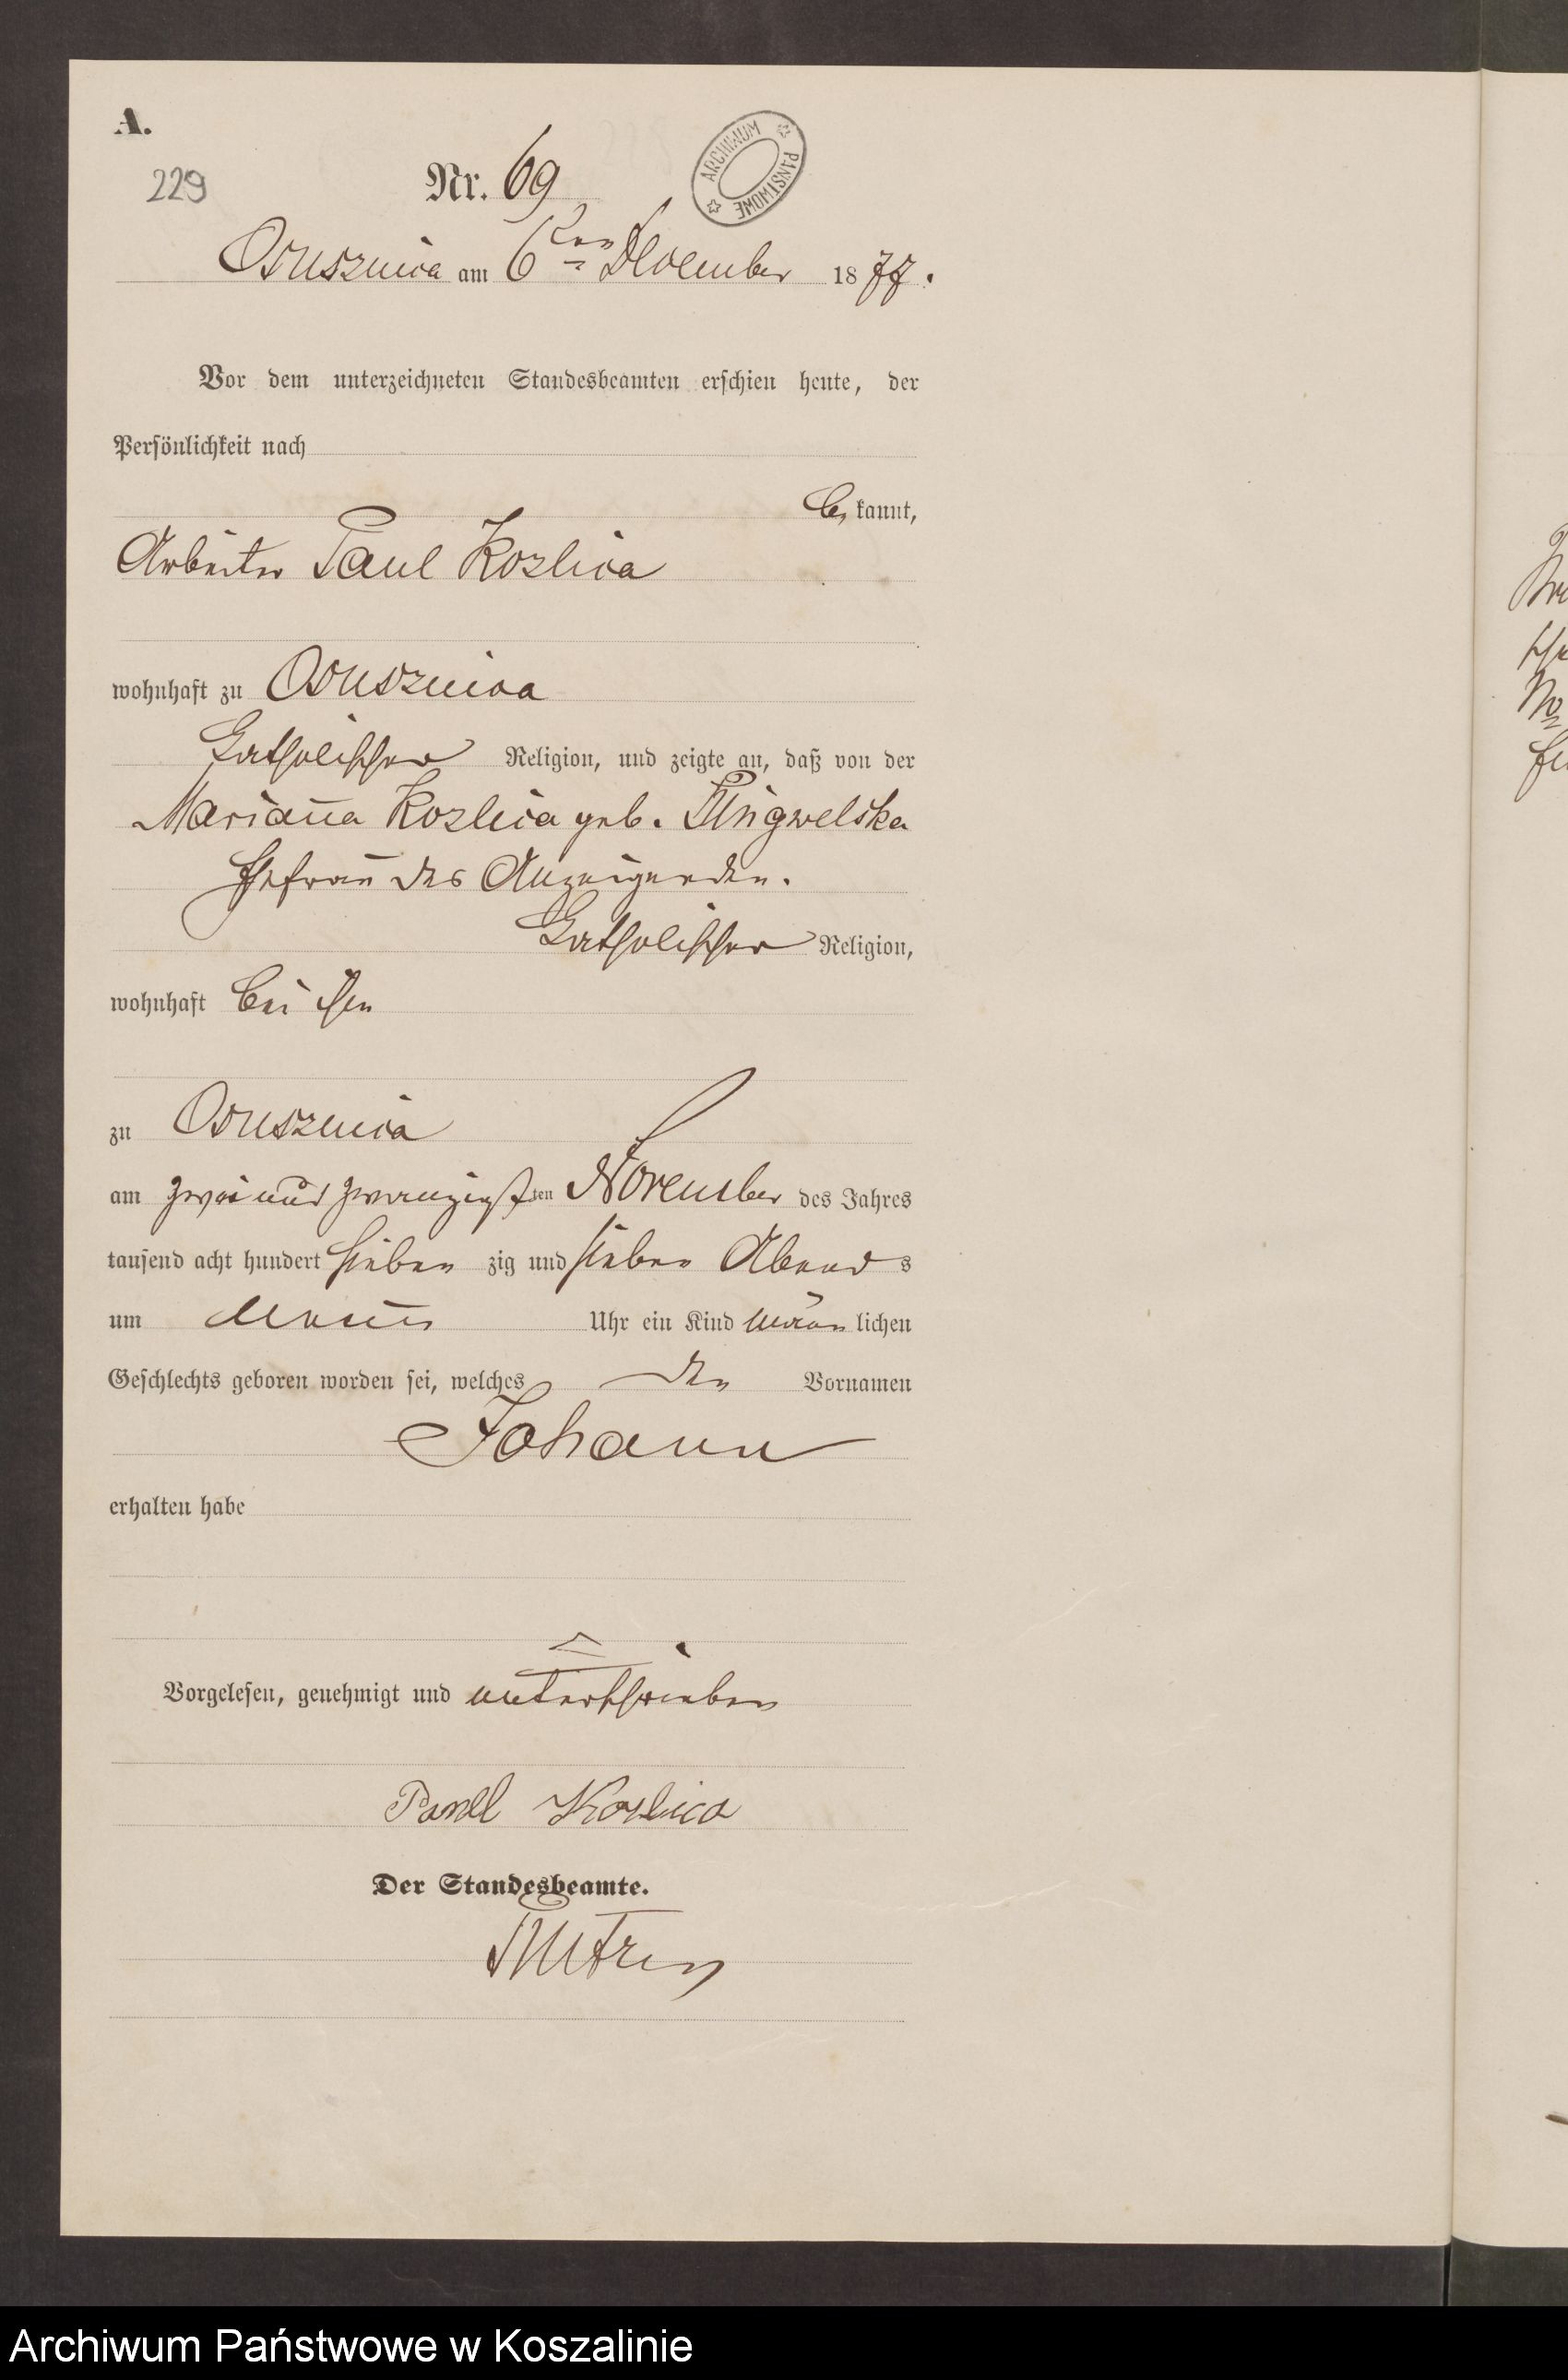 A.
229
Nr. 69
ARCHIWUM PAŃSTWOWE
Ossusznica am 6ten Dezember 1877.
Vor dem unterzeichneten Standesbeamten erschien heute, der
Persönlichkeit nach
be kannt,
Arbeiter Paul Kozlica
wohnhaft zu Ossusznica
katholischer Religion, und zeigte an, daß von der
Marian̄a Kozlica geb.
Ehefrau des Anzeigenden.
katholischer Religion,
wohnhaft bei ihm
zu Ossusznica
am zwei und zwanzigsten November des Jahres
tausend acht hundert sieben zig und sieben Abend s
um Uhr ein Kind män̄ lichen
Geschlechts geboren worden sei, welches den Vornamen
Johann
erhalten habe
Vorgelesen, genehmigt und unterschrieben
Paul Kozlica
Der Standesbeamte.
Archiwum Państwowe w Koszalinie